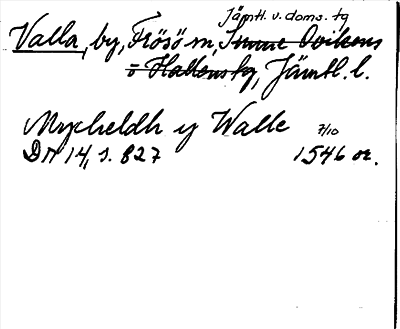 Jämtl. v. doms. tg
Valla, by, Frösö sn, Sunne Ovikens
o Hallens tg, Jämtl. l.
Mycheldh y Walle 7/10
DN 14, s. 827 1546 or.